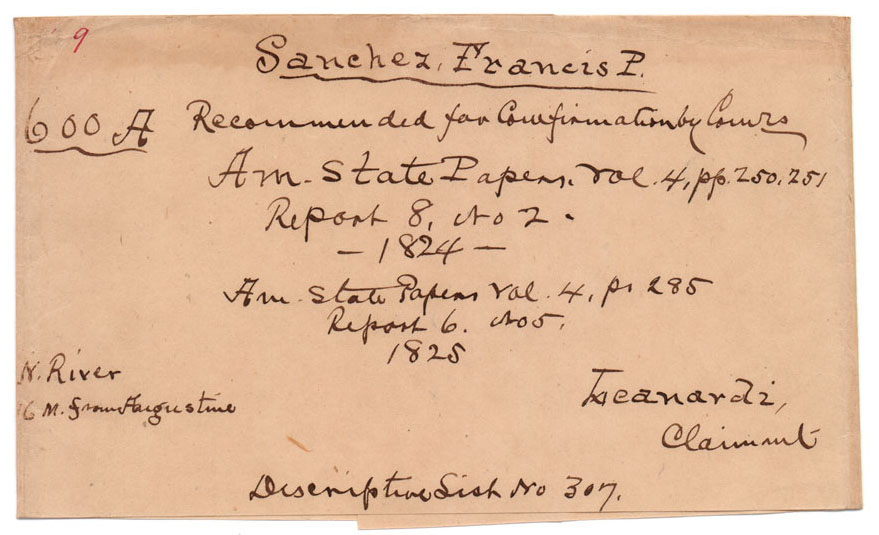 9
Sanchez, Francis P.
600 A Recommended for Confirmation by Comrs
Am. State Papers. Vol. 4, pp. 250, 251
Report 8, No 2.
— 1824 —
Am. State Papers Vol. 4, p. 285
Report 6. No 5.
1825
N. River
16 M. from Augustine
Claimant
Descriptive List No 307.